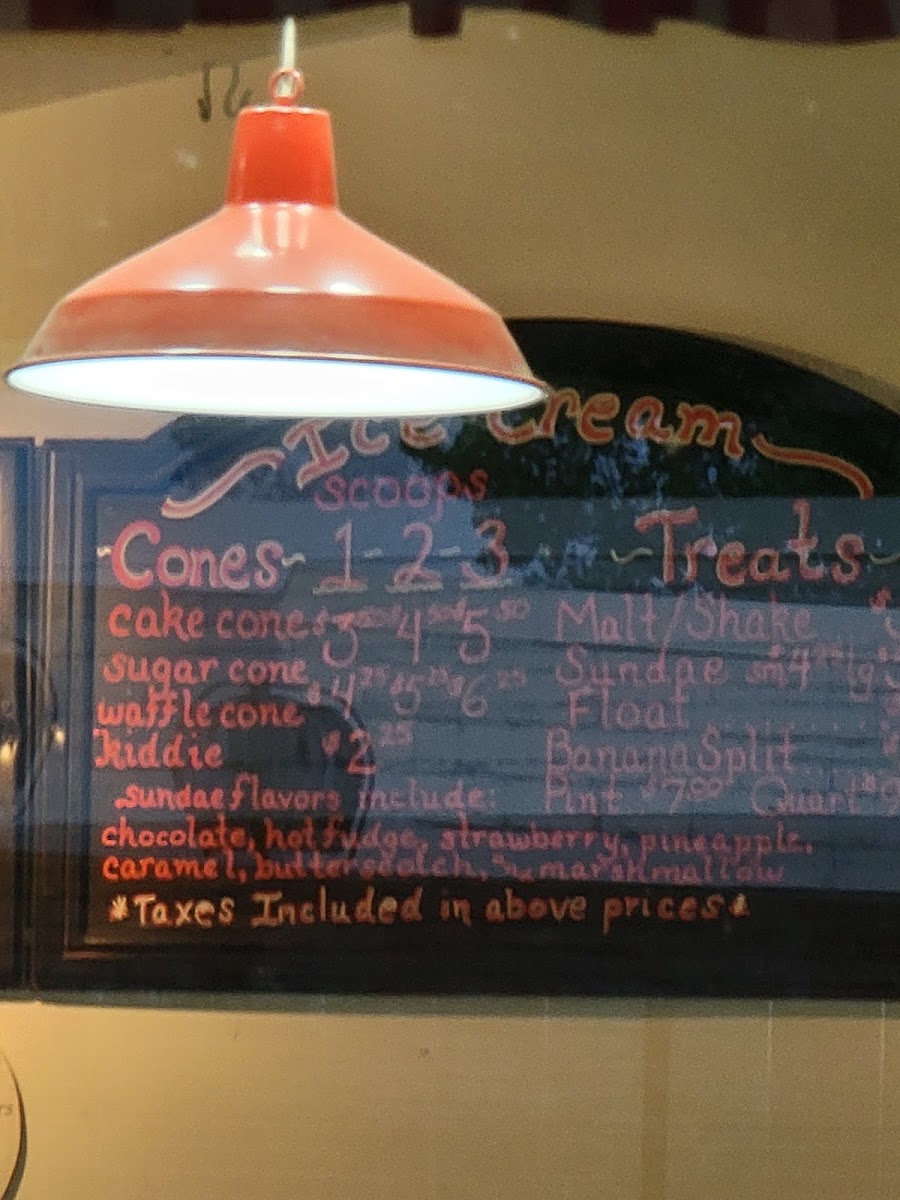 Ice Cream
scoops
~Cones~ 1 - 2 - 3
~Treats~
cake cone $3 50 $4 50 $5 50
Malt/Shake $
sugar cone
Sundae sm $4
waffle cone $4 25 $5 25 $6 25
Float
kiddie $2 25
Banana Split
sundae flavors include:
Pint $7 00 Quart $9
chocolate, hot fudge, strawberry, pineapple,
caramel, butterscotch, & marshmallow
*Taxes Included in above prices*